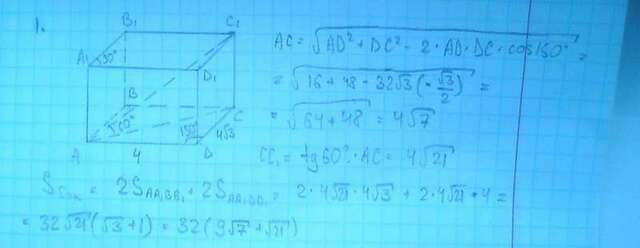 1.
B₁ C₁
A₁ 30° D₁
B C
60° 150° 4√3
A 4 D
AC = √(AD² + DC² - 2·AD·DC·cos150°) =
= √(16 + 48 - 32√3(-√3/2)) =
= √(64 + 48) = 4√7
CC₁ = tg60°·AC = 4√21
Sбок = 2S_AA₁BB₁ + 2S_AA₁DD₁ = 2·4√21·4√3 + 2·4√21·4 =
= 32√21(√3+1) = 32(3√7+√21)